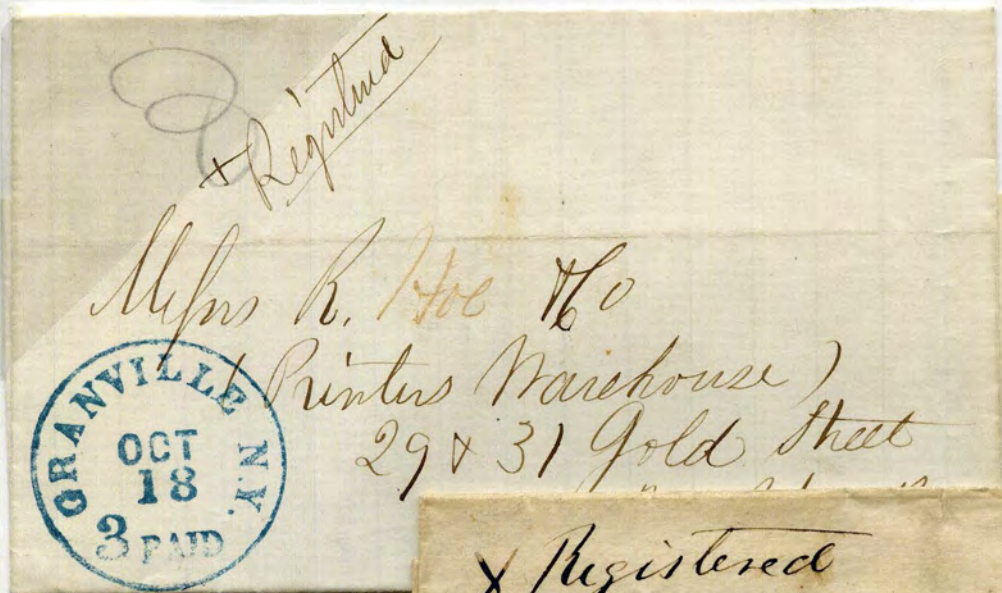 + Registered
Messrs R. Hoe & Co
(Printers Warehouse)
29 & 31 Gold Street
GRANVILLE N.Y.
OCT
18
3 PAID
x Registered